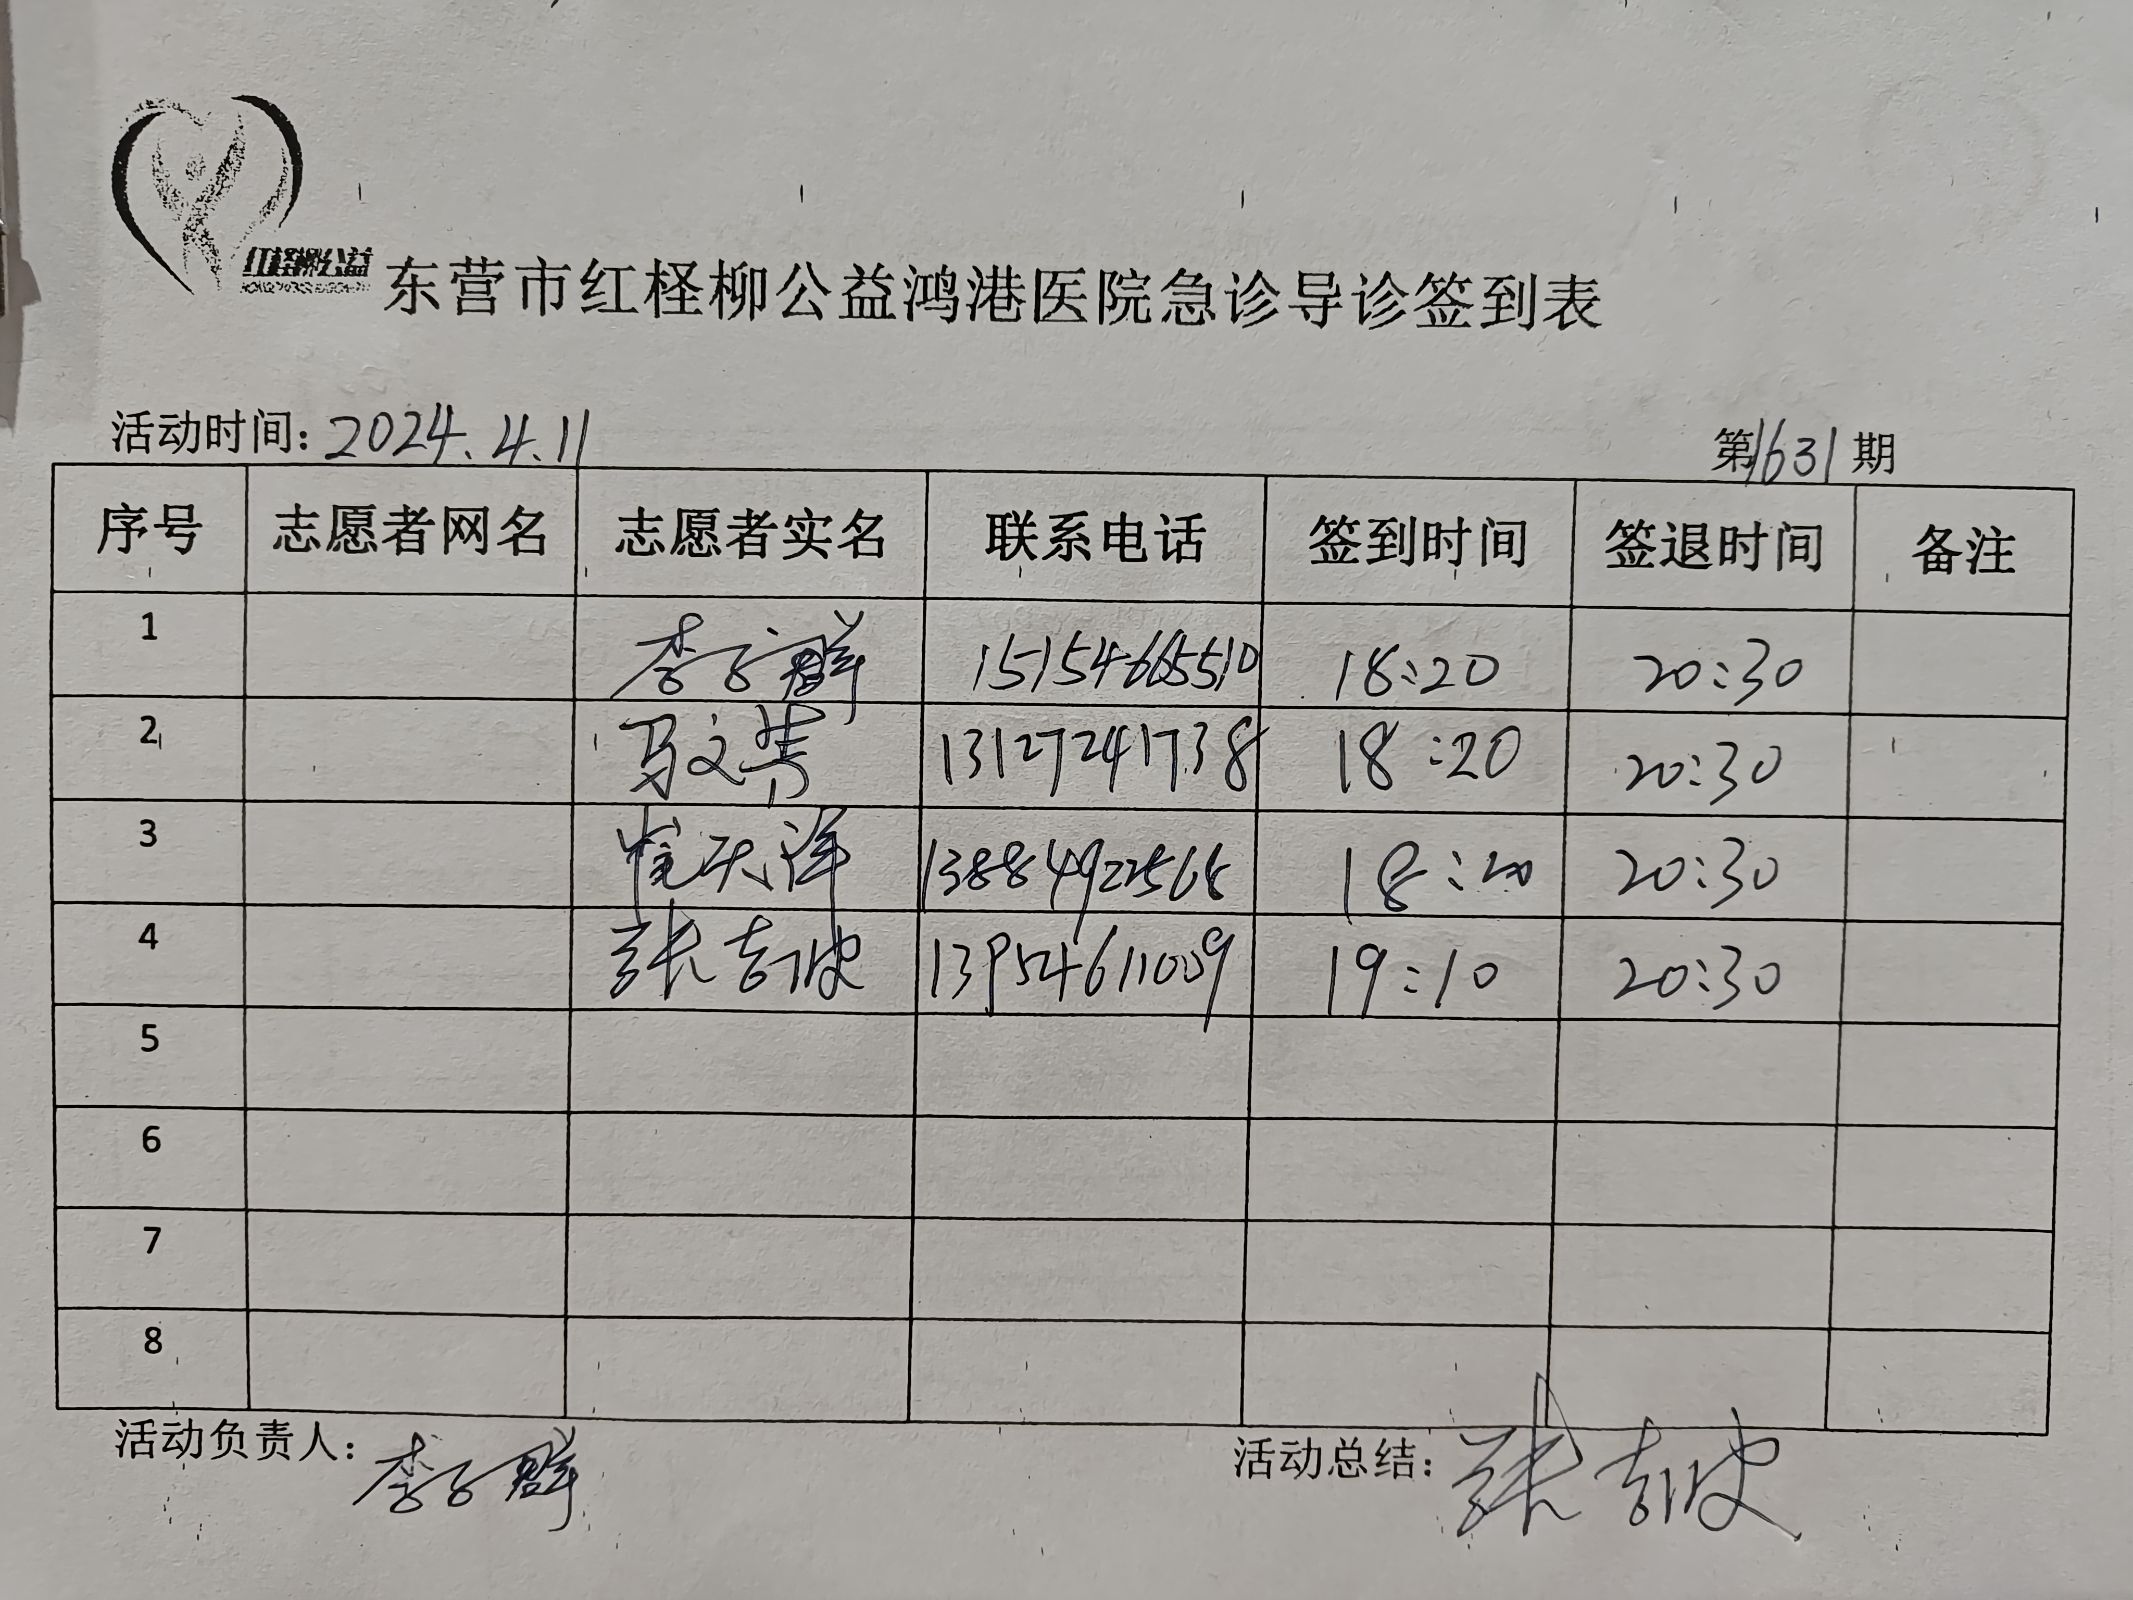 红柽柳公益
东营市红柽柳公益鸿港医院急诊导诊签到表
活动时间：2024.4.11 第1631期
序号 志愿者网名 志愿者实名 联系电话 签到时间 签退时间 备注
1 李子群 15154665510 18:20 20:30
2 马文芳 13127241738 18:20 20:30
3 崔天洋 13884922568 18:20 20:30
4 张志波 13954611009 19:10 20:30
5
6
7
8
活动负责人：李子群 活动总结：张志波